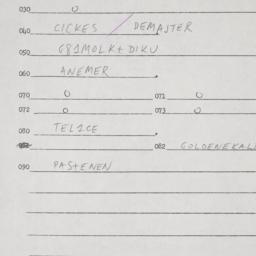 030 0
040 CICKES / DEMAJTER
050 G81MOLK+ DIKU
060 ANEMER
070 0 071 0
072 0 073 0
080 TEL2CE
082 GOLDENEKAL
090 PASTENEN